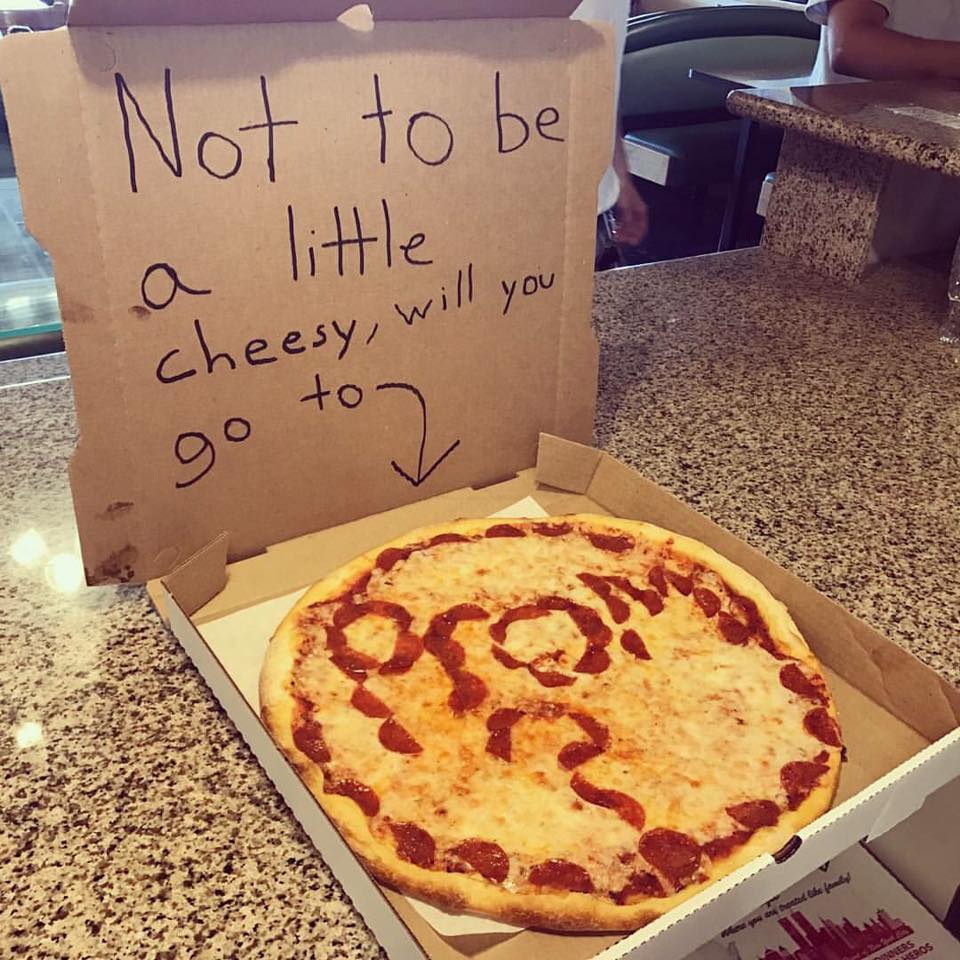 Not to be
a little
cheesy, will you
go to
prom
?
Where you are treated like family!
DINNERS
HEROS